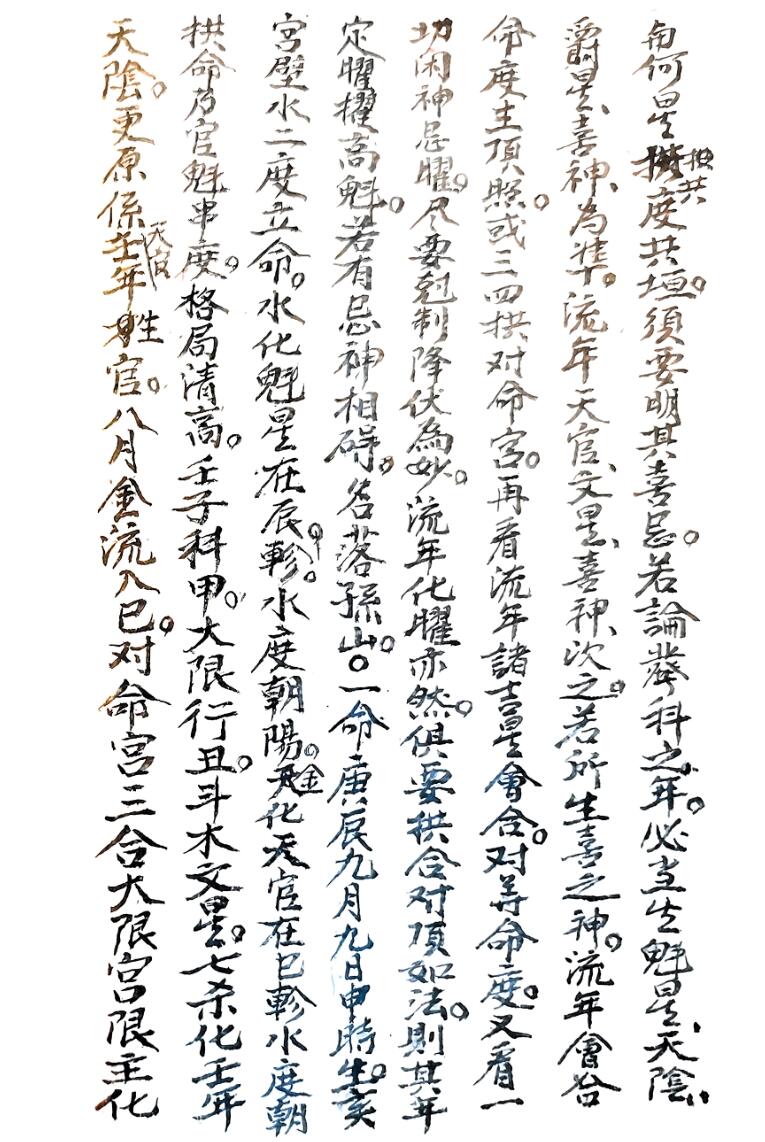 向何星拱度共垣。須要明其喜忌。若論發科之年。必当生魁星、天陰、
爵星、喜神、為準。流年天官、文星、喜神、次之。若所生喜之神。流年會合
命度主頂照。或三四拱对命宮。再看流年諸吉星會合。对等命度。又看一
切闲神忌曜。尽要剋制降伏為妙。流年化曜亦然。俱要拱合对頂如法。則其年
定曜擢高魁。若有忌神相碍。名落孫山。○一命庚辰九月九日申時生。亥
宮壁水二度立命。水化魁星在辰。軫水度朝陽。金化天官在巳軫水度朝
拱命乃官魁串度。格局清高。壬子科甲。大限行丑。斗木文星。七杀化壬年
天陰。更原係壬年天官姓官。八月金流入巳。对命宮三合大限宮限主化